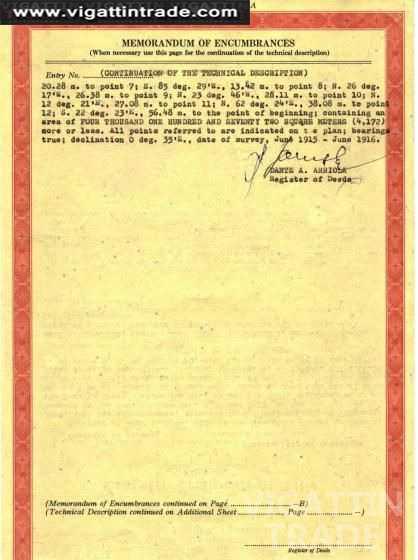 www.vigattintrade.com
A
MEMORANDUM OF ENCUMBRANCES
(When necessary use this page for the continuation of the technical description)
Entry No. (CONTINUATION OF THE TECHNICAL DESCRIPTION)
20.28 m. to point 7; N. 85 deg. 29'E., 13.42 m. to point 8; N. 26 deg.
17'E., 26.38 m. to point 9; N. 23 deg. 46'E., 28.11 m. to point 10; N.
12 deg. 21'E., 27.08 m. to point 11; N. 62 deg. 24'E., 38.08 m. to point
12; S. 22 deg. 23'E., 56.48 m. to the point of beginning; containing an
area of FOUR THOUSAND ONE HUNDRED AND SEVENTY TWO SQUARE METERS (4,172)
more or less. All points referred to are indicated on t e plan; bearings
true; declination 0 deg. 35'E., date of survey, June 1915 - June 1916.
DANTE A. ARRIOLA
Register of Deeds
(Memorandum of Encumbrances continued on Page ....................—B)
(Technical Description continued on Additional Sheet ..............., Page ..............—)
VIGATTIN
TRADE
Register of Deeds